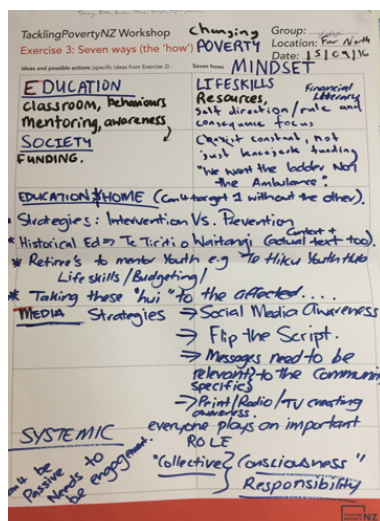 TacklingPovertyNZ Workshop
Changing
Group:
Exercise 3: Seven ways (the 'how')
POVERTY
Location: Far North
Date: 15/09/16
Ideas and possible actions (specific ideas from Exercise 2)
Seven hows
MINDSET
EDUCATION
classroom, behaviours
Mentoring, awareness
LIFESKILLS
Financial Literacy
Resources,
self direction/rule and
consequence focus
SOCIETY
FUNDING.
constant, not
just kneejerk funding
"We want the ladder NOT
the Ambulance".
EDUCATION & HOME (can't target 1 without the other).
* Strategies: Intervention Vs. Prevention
* Historical Ed → Te Tiriti o Waitangi (Context + actual text too).
* Retiree's to mentor Youth e.g Te Hiku Youth Hub
Life skills / Budgeting /
* Taking these "hui" to the affected....
MEDIA Strategies → Social Media Awareness
→ Flip the Script.
→ Messages need to be
relevant to the
specifics
→ Print/Radio/TV creating
awareness.
SYSTEMIC
everyone plays an important
ROLE
can't be
Passive
Needs to
be engagement.
"Collective Consciousness"
Responsibility